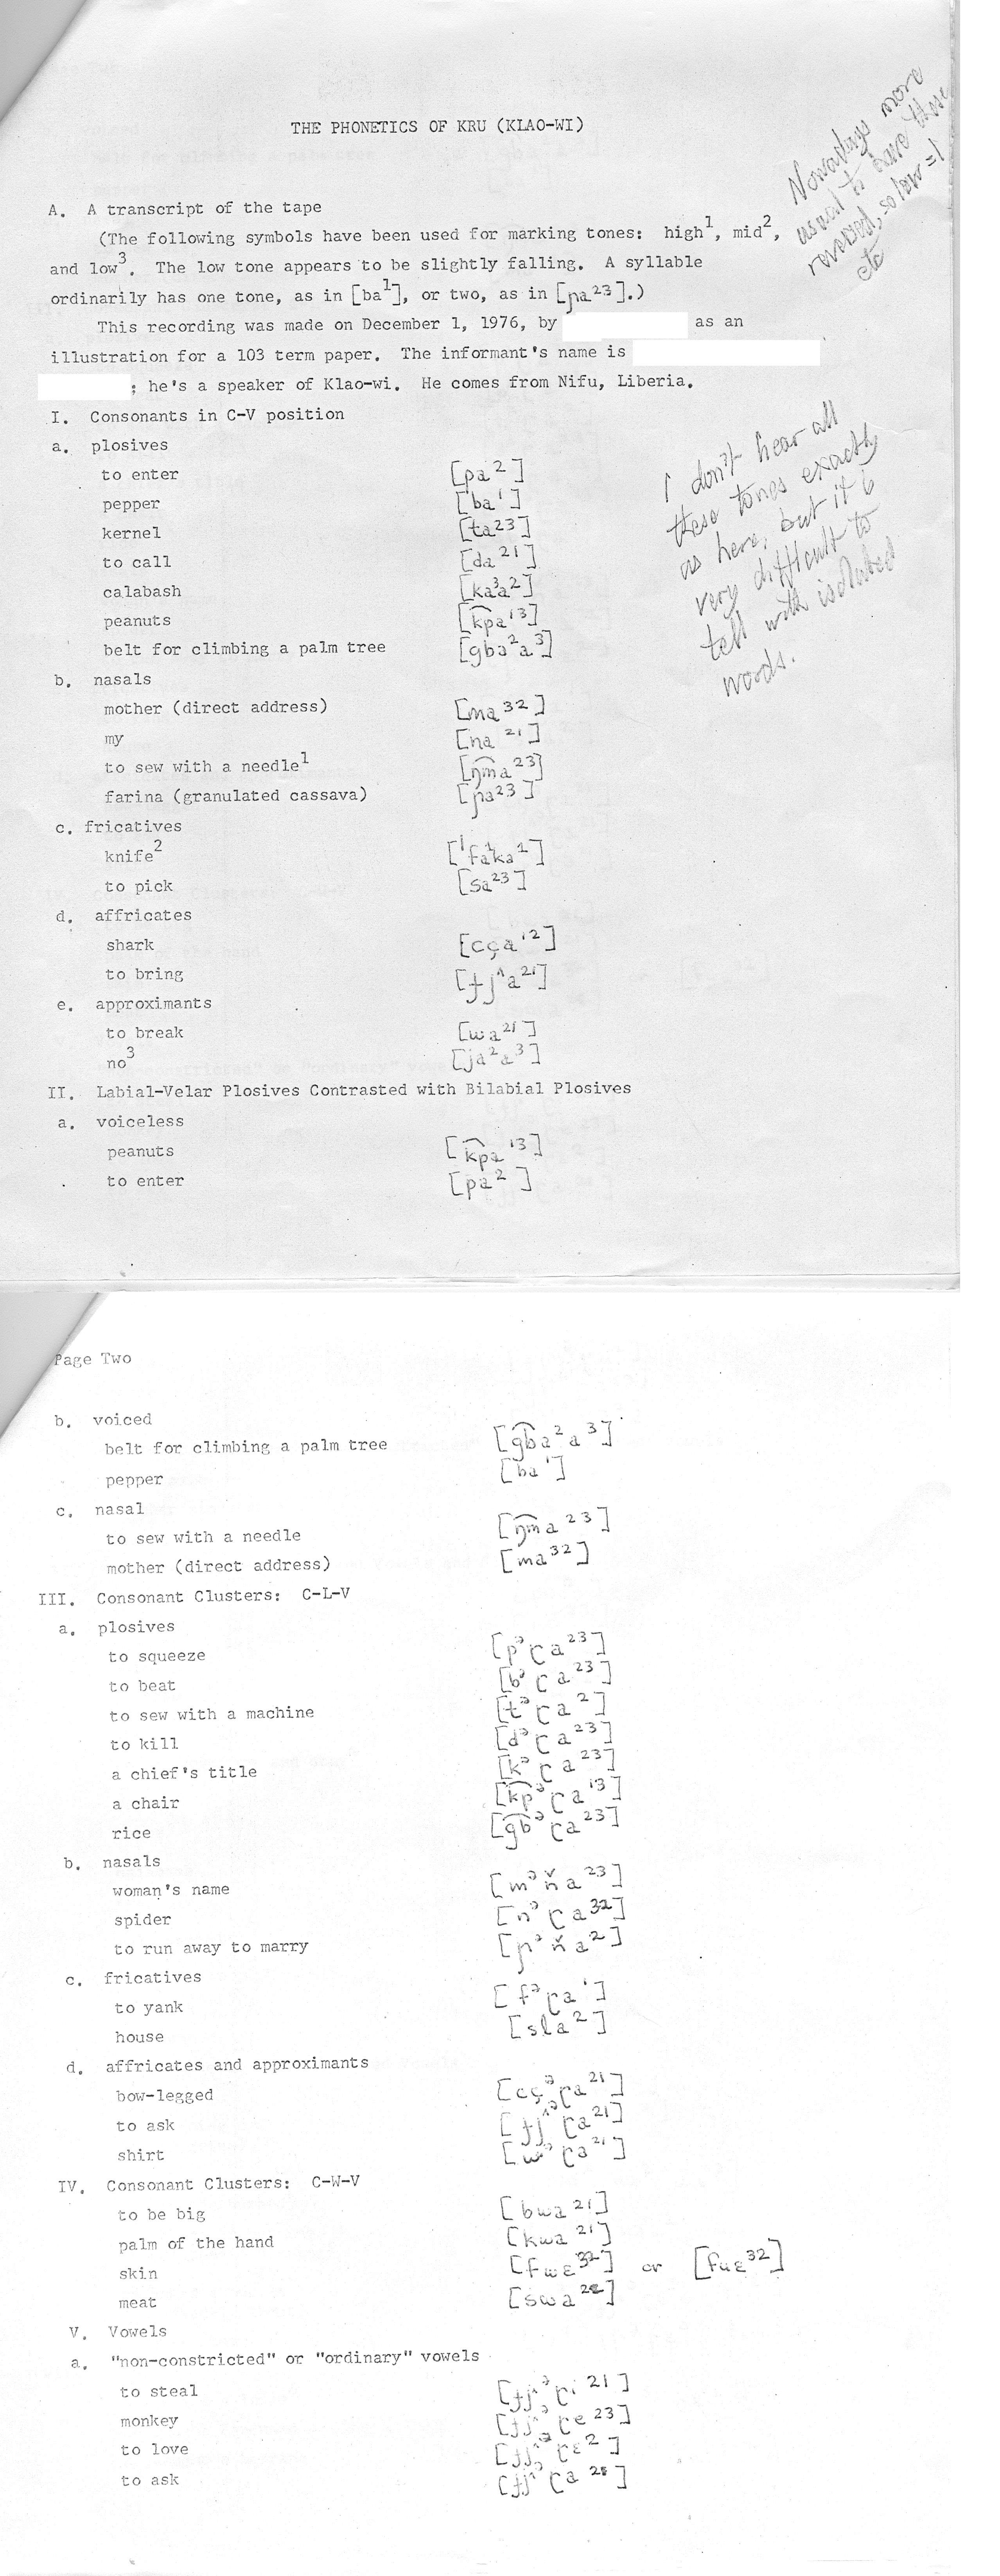 THE PHONETICS OF KRU (KLAO-WI)
Nowadays more
usual to have these
reversed, so low = 1
etc
A. A transcript of the tape
(The following symbols have been used for marking tones: high¹, mid²,
and low³. The low tone appears to be slightly falling. A syllable
ordinarily has one tone, as in [ba¹], or two, as in [ɲa²³].)
This recording was made on December 1, 1976, by as an
illustration for a 103 term paper. The informant's name is
; he's a speaker of Klao-wi. He comes from Nifu, Liberia.
I. Consonants in C-V position
a. plosives
to enter [pa²]
pepper [ba¹]
kernel [ta²³]
to call [da²¹]
calabash [ka³a²]
peanuts [k͡pa¹³]
belt for climbing a palm tree [gba²a³]
I don't hear all
these tones exactly
as here, but it is
very difficult to
tell with isolated
words.
b. nasals
mother (direct address) [ma³²]
my [na²¹]
to sew with a needle¹ [ŋ͡ma²³]
farina (granulated cassava) [ɲa²³]
c. fricatives
knife² [ˈfa¹ka²]
to pick [sa²³]
d. affricates
shark [cça¹²]
to bring [ɟʝa²¹]
e. approximants
to break [wa²¹]
no³ [ja²a³]
II. Labial-Velar Plosives Contrasted with Bilabial Plosives
a. voiceless
peanuts [k͡pa¹³]
to enter [pa²]
Page Two
b. voiced
belt for climbing a palm tree [g͡ba²a³]
pepper [ba¹]
c. nasal
to sew with a needle [ŋ͡ma²³]
mother (direct address) [ma³²]
III. Consonant Clusters: C-L-V
a. plosives
to squeeze [pᵊɽa²³]
to beat [bᵊɽa²³]
to sew with a machine [tᵊɽa²]
to kill [dᵊɽa²³]
a chief's title [kᵊɽa²³]
a chair [k͡pᵊɽa¹³]
rice [g͡bᵊɽa²³]
b. nasals
woman's name [mᵊňa²³]
spider [nᵊɽa³²]
to run away to marry [ɲᵊňa²]
c. fricatives
to yank [fᵊɽa¹]
house [sla²]
d. affricates and approximants
bow-legged [cçᵊɽa²¹]
to ask [ɟʝᵊɽa²¹]
shirt [wᵊɽa²¹]
IV. Consonant Clusters: C-W-V
to be big [bwa²¹]
palm of the hand [kwa²¹]
skin [fwɛ³²] or [fuɛ³²]
meat [swa]
V. Vowels
a. "non-constricted" or "ordinary" vowels
to steal [ɟʝᵊɽi²¹]
monkey [ɟʝᵊɽe²³]
to love [ɟʝᵊɽɛ²]
to ask [ɟʝᵊɽa²¹]